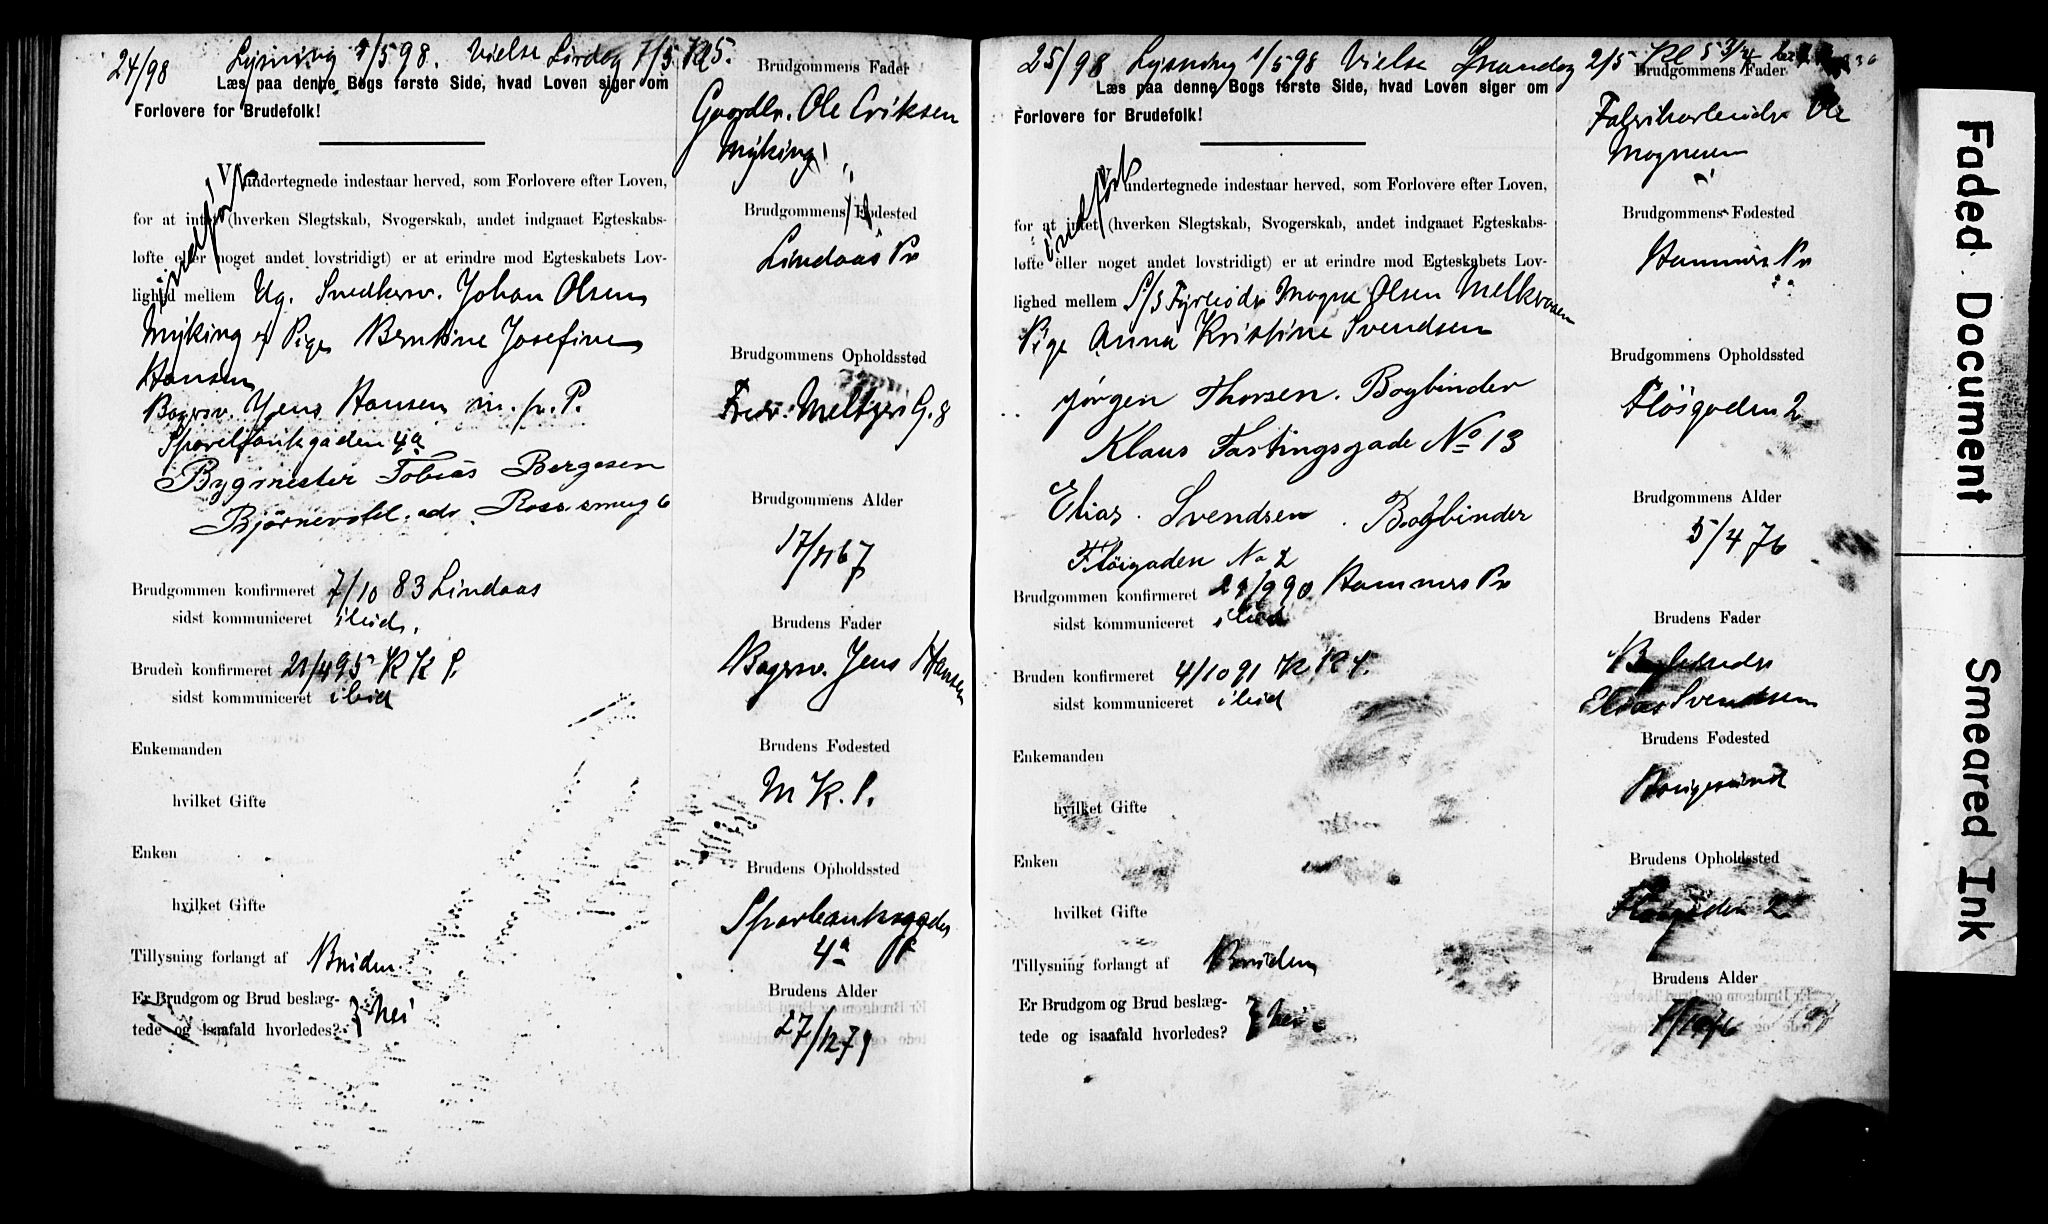 24/98 Lysning 1/5 98. Vielse Lørdag 7/5 Kl 5.
Læs paa denne Bogs første Side, hvad Loven siger om
Forlovere for Brudefolk!
indført
Vi undertegnede indestaar herved, som Forlovere efter Loven,
for at intet (hverken Slegtskab, Svogerskab, andet indgaaet Egteskabs-
løfte eller noget andet lovstridigt) er at erindre mod Egteskabets Lov-
lighed mellem Ug. Snedkersv. Johan Olsen
Myking og Pige Berntine Josefine
Hansen
Bagersv. Jens Hansen m. p. P.
Sparebankgaden 4a
Bygmester Tobias Bergesen
Rosesmug 6
Brudgommen konfirmeret 7/10 83 Lindaas
sidst kommuniceret ibid.
Bruden konfirmeret 21/4 95 K K P.
sidst kommuniceret ibid
Enkemanden
hvilket Gifte
Enken
hvilket Gifte
Tillysning forlangt af Bruden
Er Brudgom og Brud beslæg-
tede og isaafald hvorledes? } Nei
Brudgommens Fader
Gaardbr. Ole Eriksen
Myking
Brudgommens Fødested
Lindaas Pr
Brudgommens Opholdssted
Fredr. Meltzers G. 8
Brudgommens Alder
Brudens Fader
Bagersv. Jens Hansen
Brudens Fødested
M K. P.
Brudens Opholdssted
Sparbanksgaden
4a
Brudens Alder
27/12 79
25/98 Lysning 1/5 98 Vielse Mandag 2/5 Kl 5 3/4
Læs paa denne Bogs første Side, hvad Loven siger om
Forlovere for Brudefolk!
indført
Vi undertegnede indestaar herved, som Forlovere efter Loven,
for at intet (hverken Slegtskab, Svogerskab, andet indgaaet Egteskabs-
løfte eller noget andet lovstridigt) er at erindre mod Egteskabets Lov-
lighed mellem S/S Fyrbøder Magne Olsen Melkvasen
Pige Anna Kristine Svendsen
Jørgen Thorsen. Bogbinder
Klaus Fastingsgade No 13
Elias Svendsen. Bogbinder
Fløigaden No 2
Brudgommen konfirmeret 21/9 90 Hammers Pr
sidst kommuniceret ibid
Bruden konfirmeret 4/10 91 K K P.
sidst kommuniceret ibid
Enkemanden
hvilket Gifte
Enken
hvilket Gifte
Tillysning forlangt af Bruden
Er Brudgom og Brud beslæg-
tede og isaafald hvorledes? } Nei
Brudgommens Fader
Fabrikarbeider Ole
Magnesen
Brudgommens Fødested
Hammers Pr
Brudgommens Opholdssted
Fløsgaden 2
Brudgommens Alder
5/4 76
Brudens Fader
Bogbinder
Elias Svendsen
Brudens Fødested
Haugesund
Brudens Opholdssted
Fløigaden 2
Brudens Alder
Faded Document
Smeared Ink